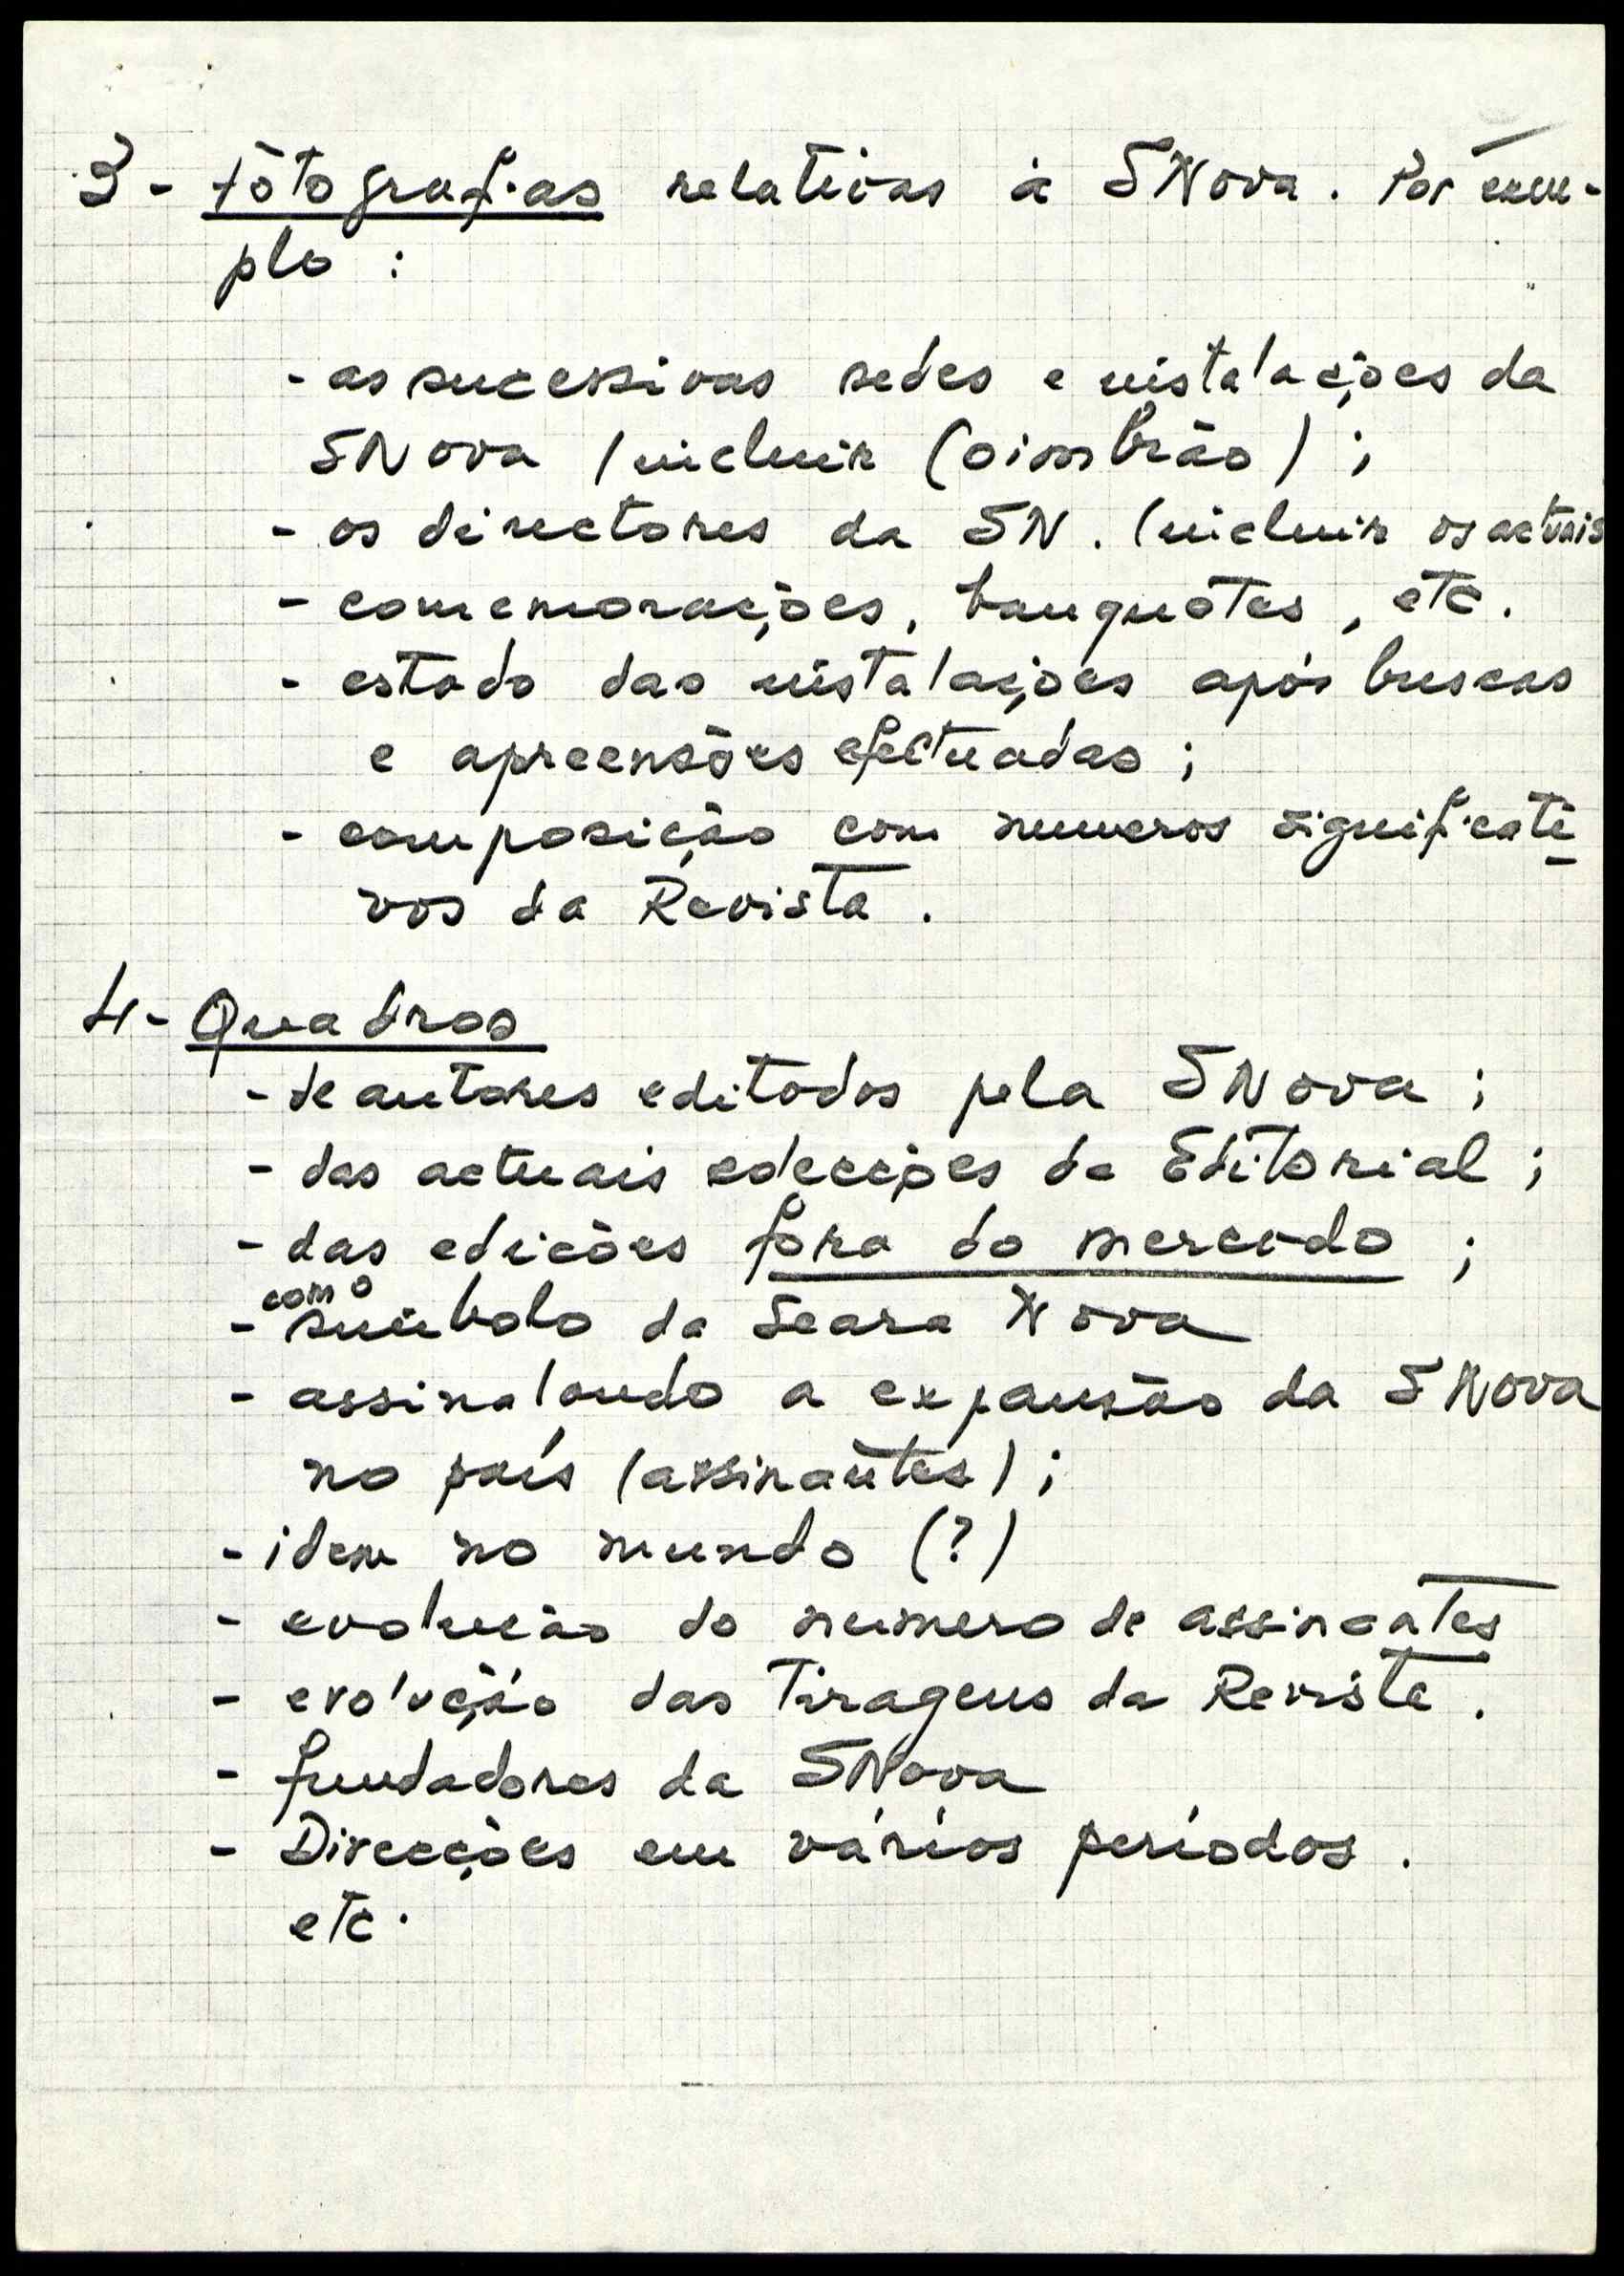 3 - fotografias relativas à SNova. Por exem-
plo :
- as sucessivas sedes e instalações da
SNova (incluir Coimbrão) ;
- os directores da SN. (incluir os actuais
- comemorações, banquetes, etc.
- estado das instalações após buscas
e apreensões efectuadas ;
- composição com numeros significati
vos da Revista.
4 - Quadros
- de autores editados pela SNova ;
- das actuais coleções da Editorial ;
- das edicões fora do mercado ;
- com o simbolo da Seara Nova
- assinalando a expansão da SNova
no país (assinantes) ;
- idem no mundo (?)
- evolucão do numero de assinantes
- evolução das Tiragens da Revista.
- fundadores da SNova
- Direcções em vários períodos.
etc.